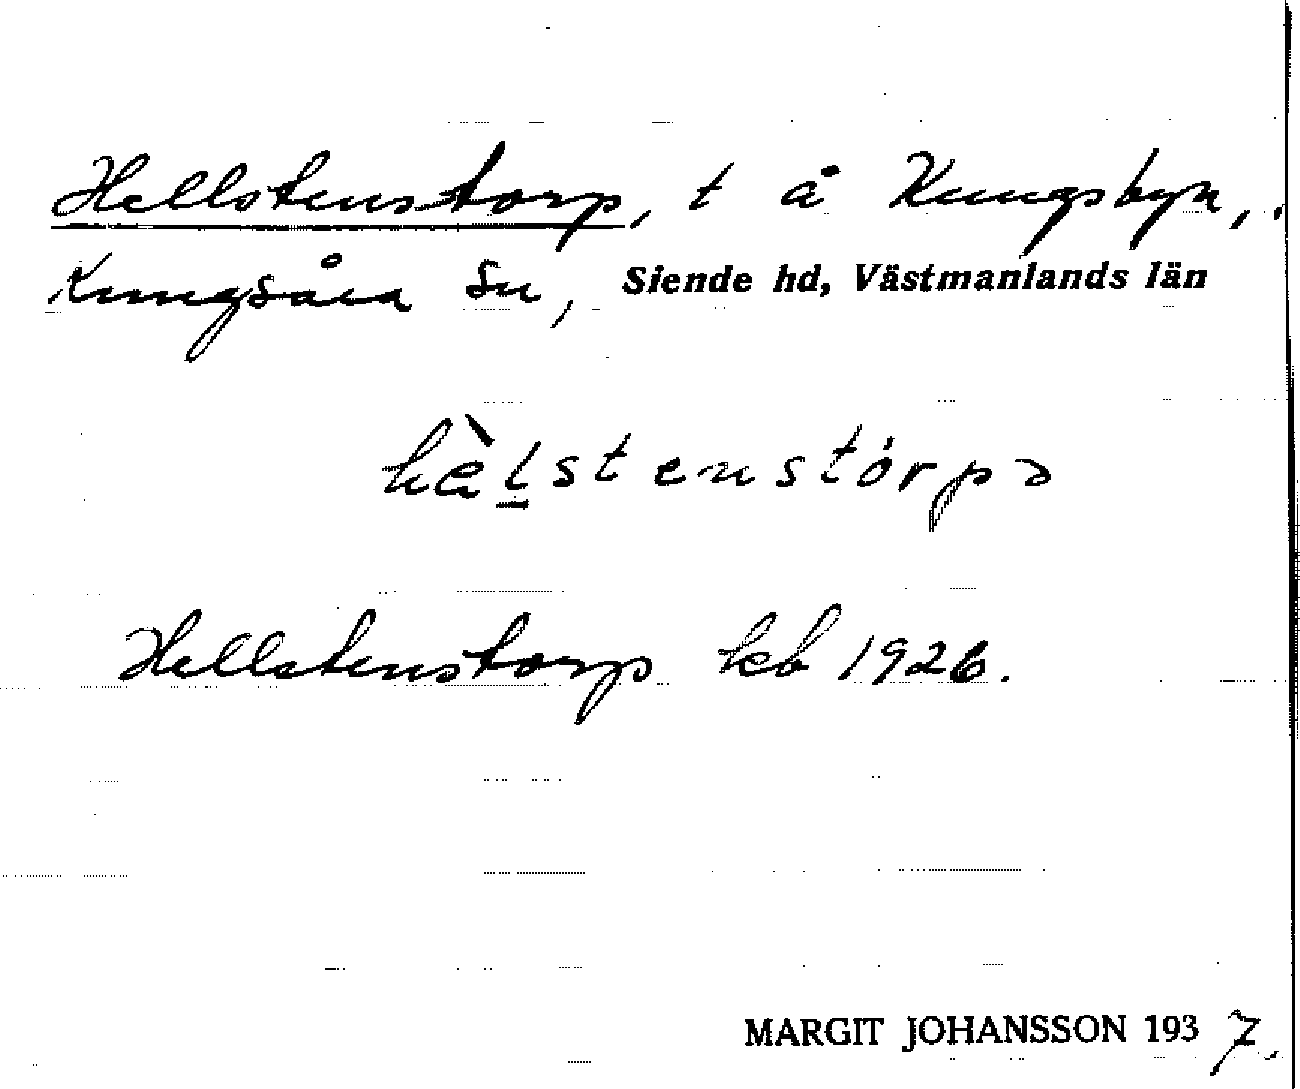 Hellstenstorp, t å Kungsbyn,
Kungsåra sn, Siende hd, Västmanlands län
hèlstenstórpə
Hellstenstorp kb 1926.
MARGIT JOHANSSON 1937.